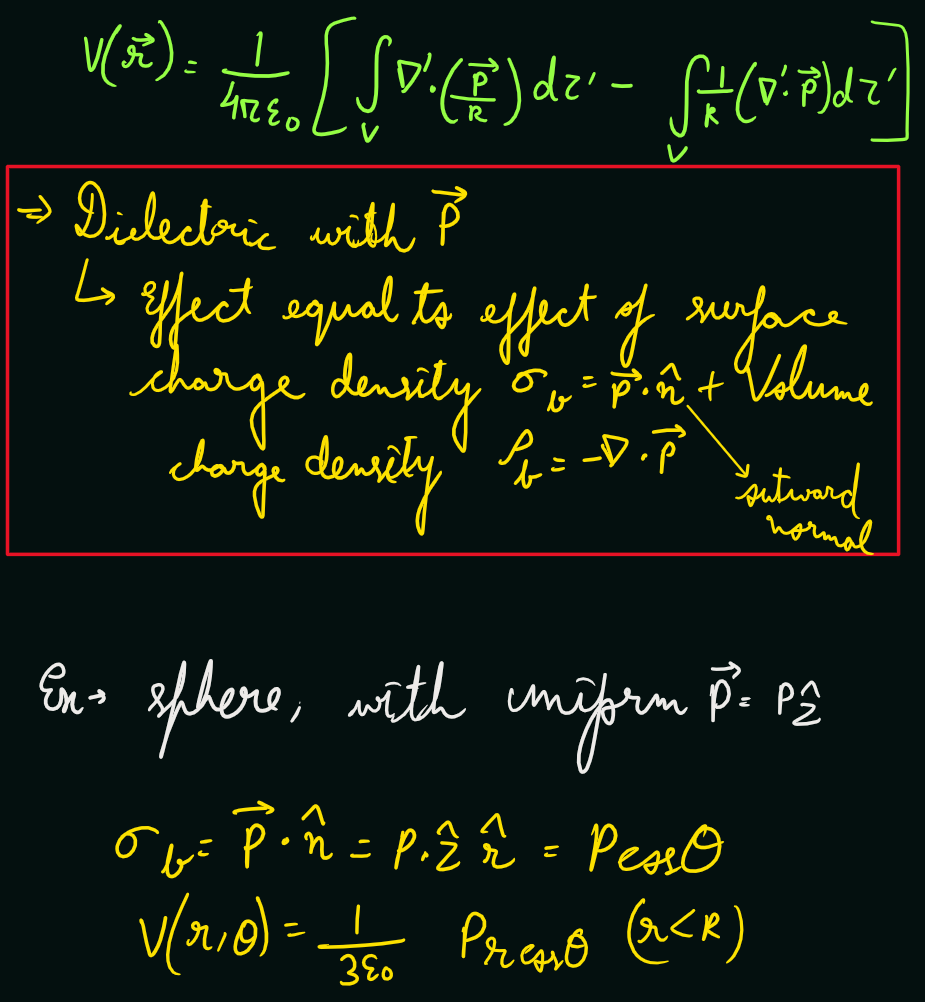 V(r⃗) = 1/4πε₀ [ ∫_V ∇'·(P⃗/R) dτ' − ∫_V 1/R (∇'·P⃗) dτ' ]
⇒ Dielectric with P⃗
↳ Effect equal to effect of surface
charge density σ_b = P⃗·n̂ + Volume
charge density ρ_b = −∇·P⃗
outward
normal
Ex→ sphere, with uniform P⃗ = Pẑ
σ_b = P⃗·n̂ = P.ẑ r̂ = Pcosθ
V(r,θ) = 1/3ε₀ Prcosθ (r<R)